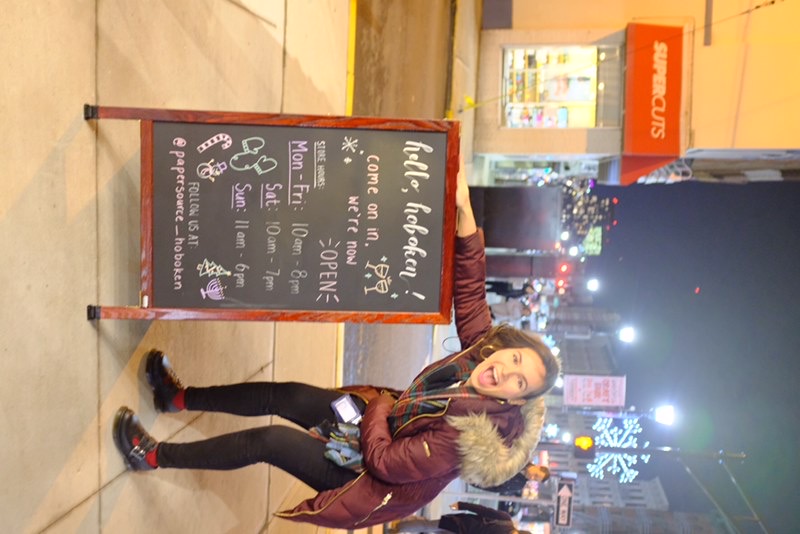 SUPERCUTS
CRAFT
ONE WAY
hello, hoboken!
come on in,
we're now
OPEN
STORE HOURS:
Mon-Fri: 10am-8pm
Sat: 10am-7pm
Sun: 11am-6pm
FOLLOW US AT:
@papersource_hoboken